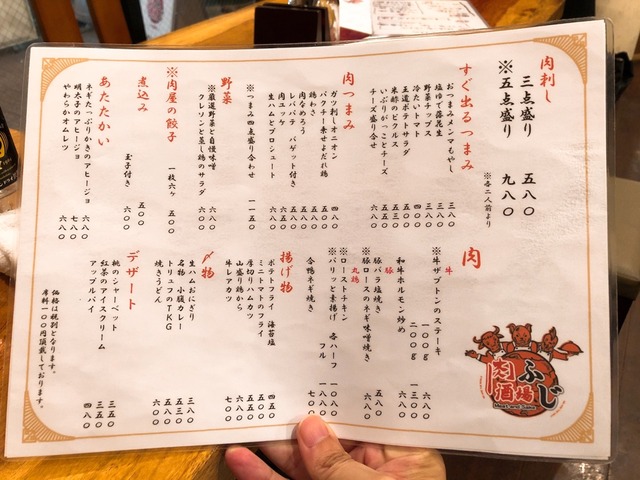 肉刺し
三点盛り 五八〇
※五点盛り 九八〇
※各二人前より
すぐ出るつまみ
おつまみメンマもやし 三八〇
塩ゆで落花生
野菜チップス 三八〇
冷たいトマト 四八〇
王道ポテトサラダ
米酢のピクルス
いぶりがっことチーズ 五八〇
チーズ盛り合せ 六八〇
肉つまみ
ガツ刺しオニオン 四八〇
パクチー乗せよだれ鶏 五八〇
鶏わさ
肉なめろう
レバパテ バゲット付き 五八〇
肉ユッケ
生ハムとプロシュート 六八〇
※つまみ四点盛り合わせ 一一五〇
野菜
※厳選野菜と自慢味噌 六八〇
クレソンと蒸し鶏のサラダ 六八〇
※肉屋の餃子 一枚六ヶ 五〇〇
煮込み
玉子付き 五〇〇
六〇〇
あたたかい
ネギたっぷりかきのアヒージョ 六八〇
明太子のアヒージョ 七八〇
やわらかオムレツ 六八〇
肉
牛
※牛ザブトンのステーキ
一〇〇g 六八〇
二〇〇g 一三〇〇
和牛ホルモン炒め 六八〇
豚
豚バラ塩焼き 五八〇
※豚ロースのネギ味噌焼き 六八〇
丸鶏
※ローストチキン
※パリッと素揚げ 各ハーフ 一〇八〇
フル 一八〇〇
合鴨ネギ焼き 七〇〇
揚げ物
ポテトフライ 海苔塩 四五〇
ミニトマトのフライ
厚切りハムカツ
山盛鶏から 六〇〇
牛レアカツ 七〇〇
〆物
生ハムおにぎり 三八〇
名物 小腹カレー 五三〇
トリュフのTKG 五八〇
焼きうどん 六〇〇
デザート
桃のシャーベット 三五〇
紅茶のアイスクリーム 三五〇
アップルパイ 四八〇
価格は税別となります。
席料一〇〇円頂戴しております。
肉酒場
ふじ
Meat and Sake